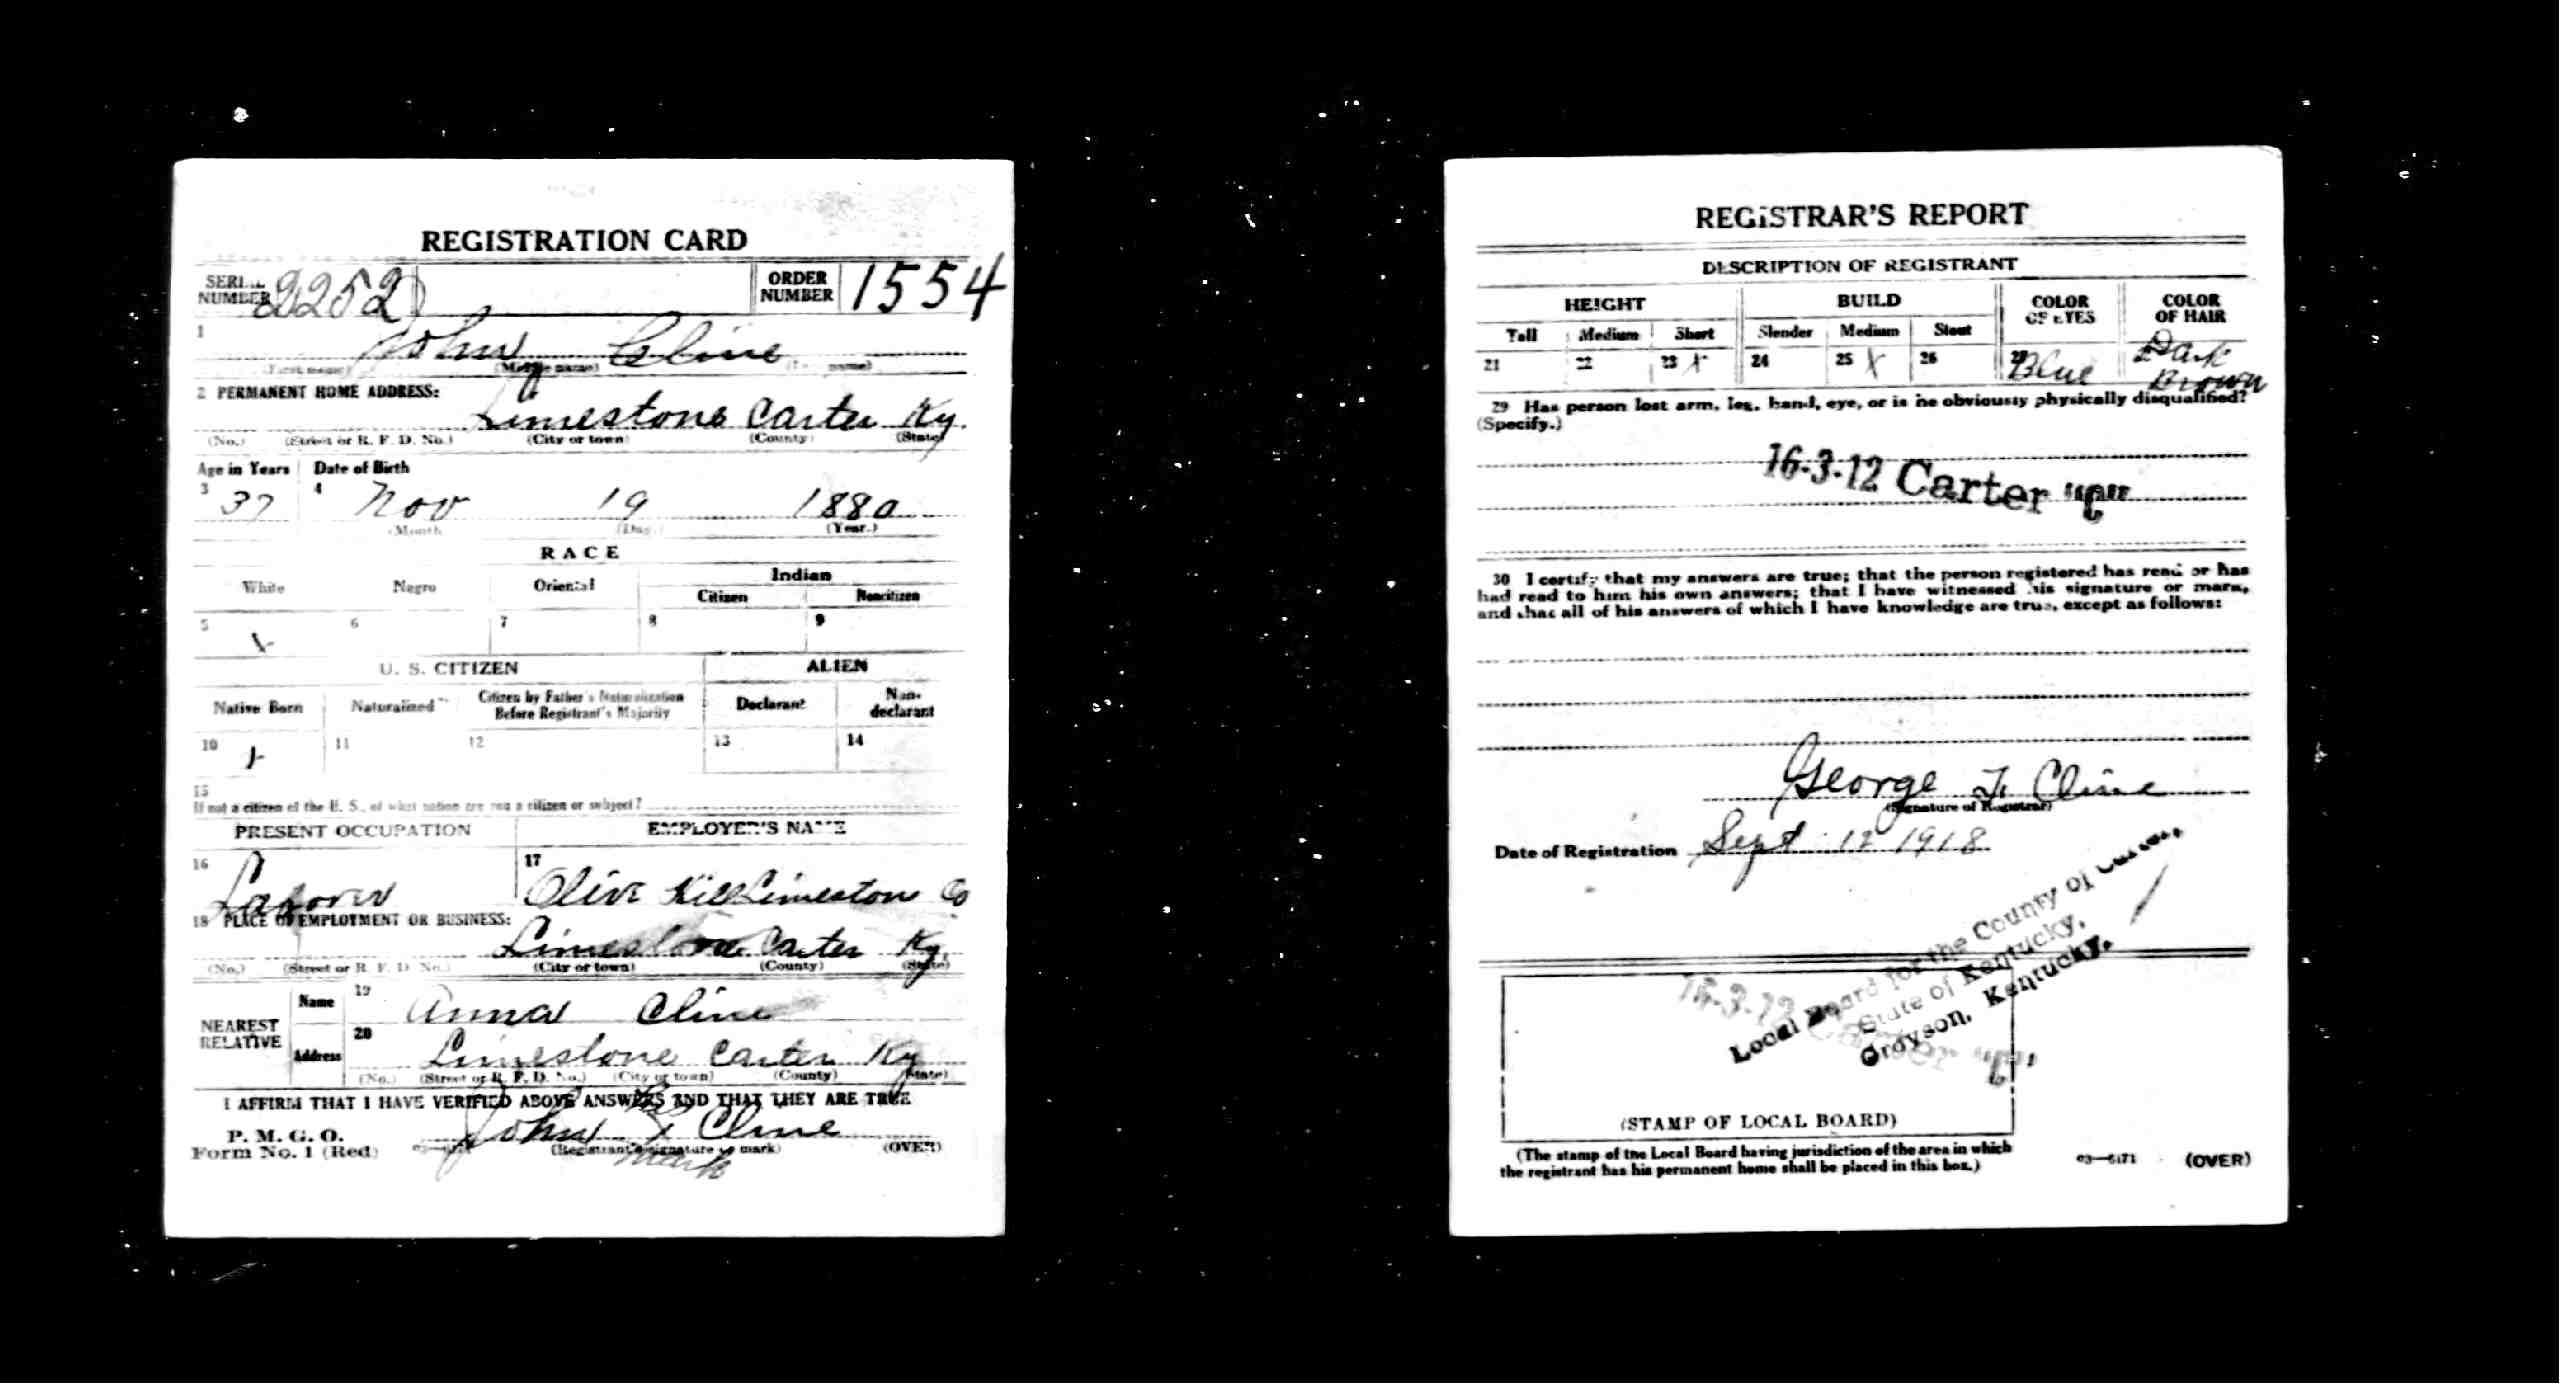 REGISTRATION CARD
SERIAL NUMBER 2252 ORDER NUMBER 1554
1 John Cline
(First name) (Middle name) (Last name)
2 PERMANENT HOME ADDRESS:
Limestone Carter Ky.
(No.) (Street or R. F. D. No.) (City or town) (County) (State)
Age in Years Date of Birth
3 37 4 Nov 19 1880
(Month) (Day.) (Year.)
RACE
White Negro Oriental Indian
Citizen Noncitizen
5 X 6 7 8 9
U. S. CITIZEN ALIEN
Native Born Naturalized Citizen by Father's Naturalization Before Registrant's Majority Declarant Non-declarant
10 X 11 12 13 14
15
If not a citizen of the U. S., of what nation are you a citizen or subject?
PRESENT OCCUPATION EMPLOYER'S NAME
16 Laborer 17 Olive Hill Limestone Co
18 PLACE OF EMPLOYMENT OR BUSINESS:
Limestone Carter Ky.
(No.) (Street or R. F. D. No.) (City or town) (County) (State)
NEAREST RELATIVE Name 19 Anna Cline
Address 20 Limestone Carter Ky
(No.) (Street or R. F. D. No.) (City or town) (County) (State)
I AFFIRM THAT I HAVE VERIFIED ABOVE ANSWERS AND THAT THEY ARE TRUE
P. M. G. O.
Form No. 1 (Red) John his X mark Cline (OVER)
(Registrant's signature or mark)
REGISTRAR'S REPORT
DESCRIPTION OF REGISTRANT
HEIGHT BUILD COLOR OF EYES COLOR OF HAIR
Tall Medium Short Slender Medium Stout
21 22 23 X 24 25 X 26 27 Blue Dark Brown
29 Has person lost arm, leg, hand, eye, or is he obviously physically disqualified?
(Specify.)
16-3-12 Carter "C"
30 I certify that my answers are true; that the person registered has read or has
had read to him his own answers; that I have witnessed his signature or mark,
and that all of his answers of which I have knowledge are true, except as follows:
George F. Cline
(Signature of Registrar)
Date of Registration Sept 12 1918
Local Board for the County of Carter,
State of Kentucky,
Grayson, Kentucky.
16-3-12 Carter "C"
(STAMP OF LOCAL BOARD)
(The stamp of the Local Board having jurisdiction of the area in which
the registrant has his permanent home shall be placed in this box.)
03—6171 (OVER)